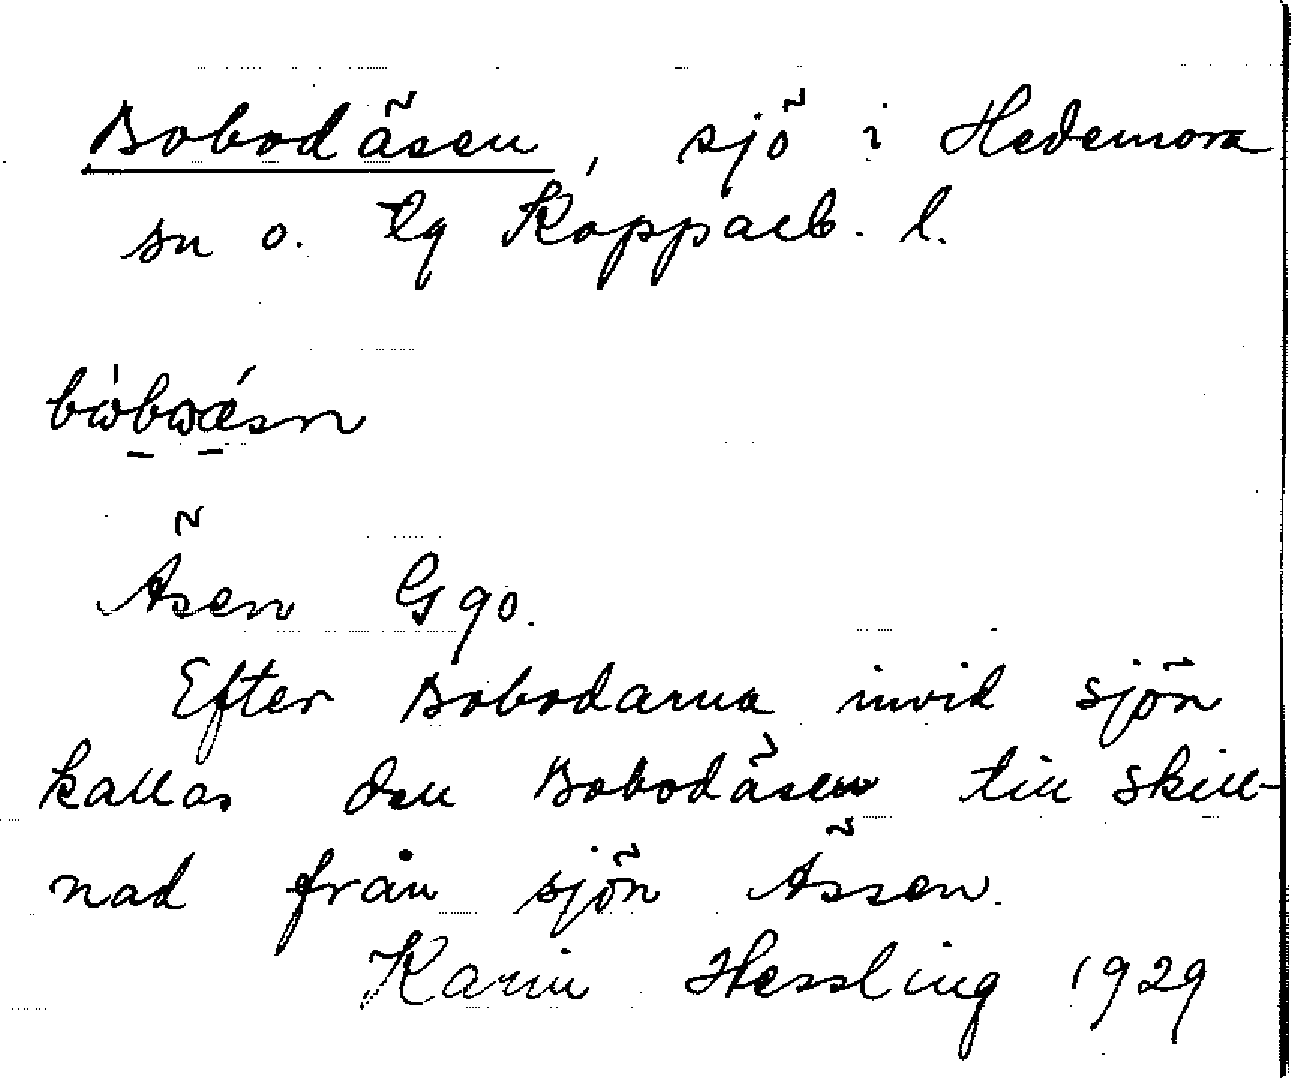 Bobodäsen, sjö i Hedemora
sn o. tg Kopparb. l.
Äsen Gqo.
Efter Bobodarna invid sjön
kallas den Bobodäsen till skill-
nad från sjön Ässen.
Karin Hessling 1929